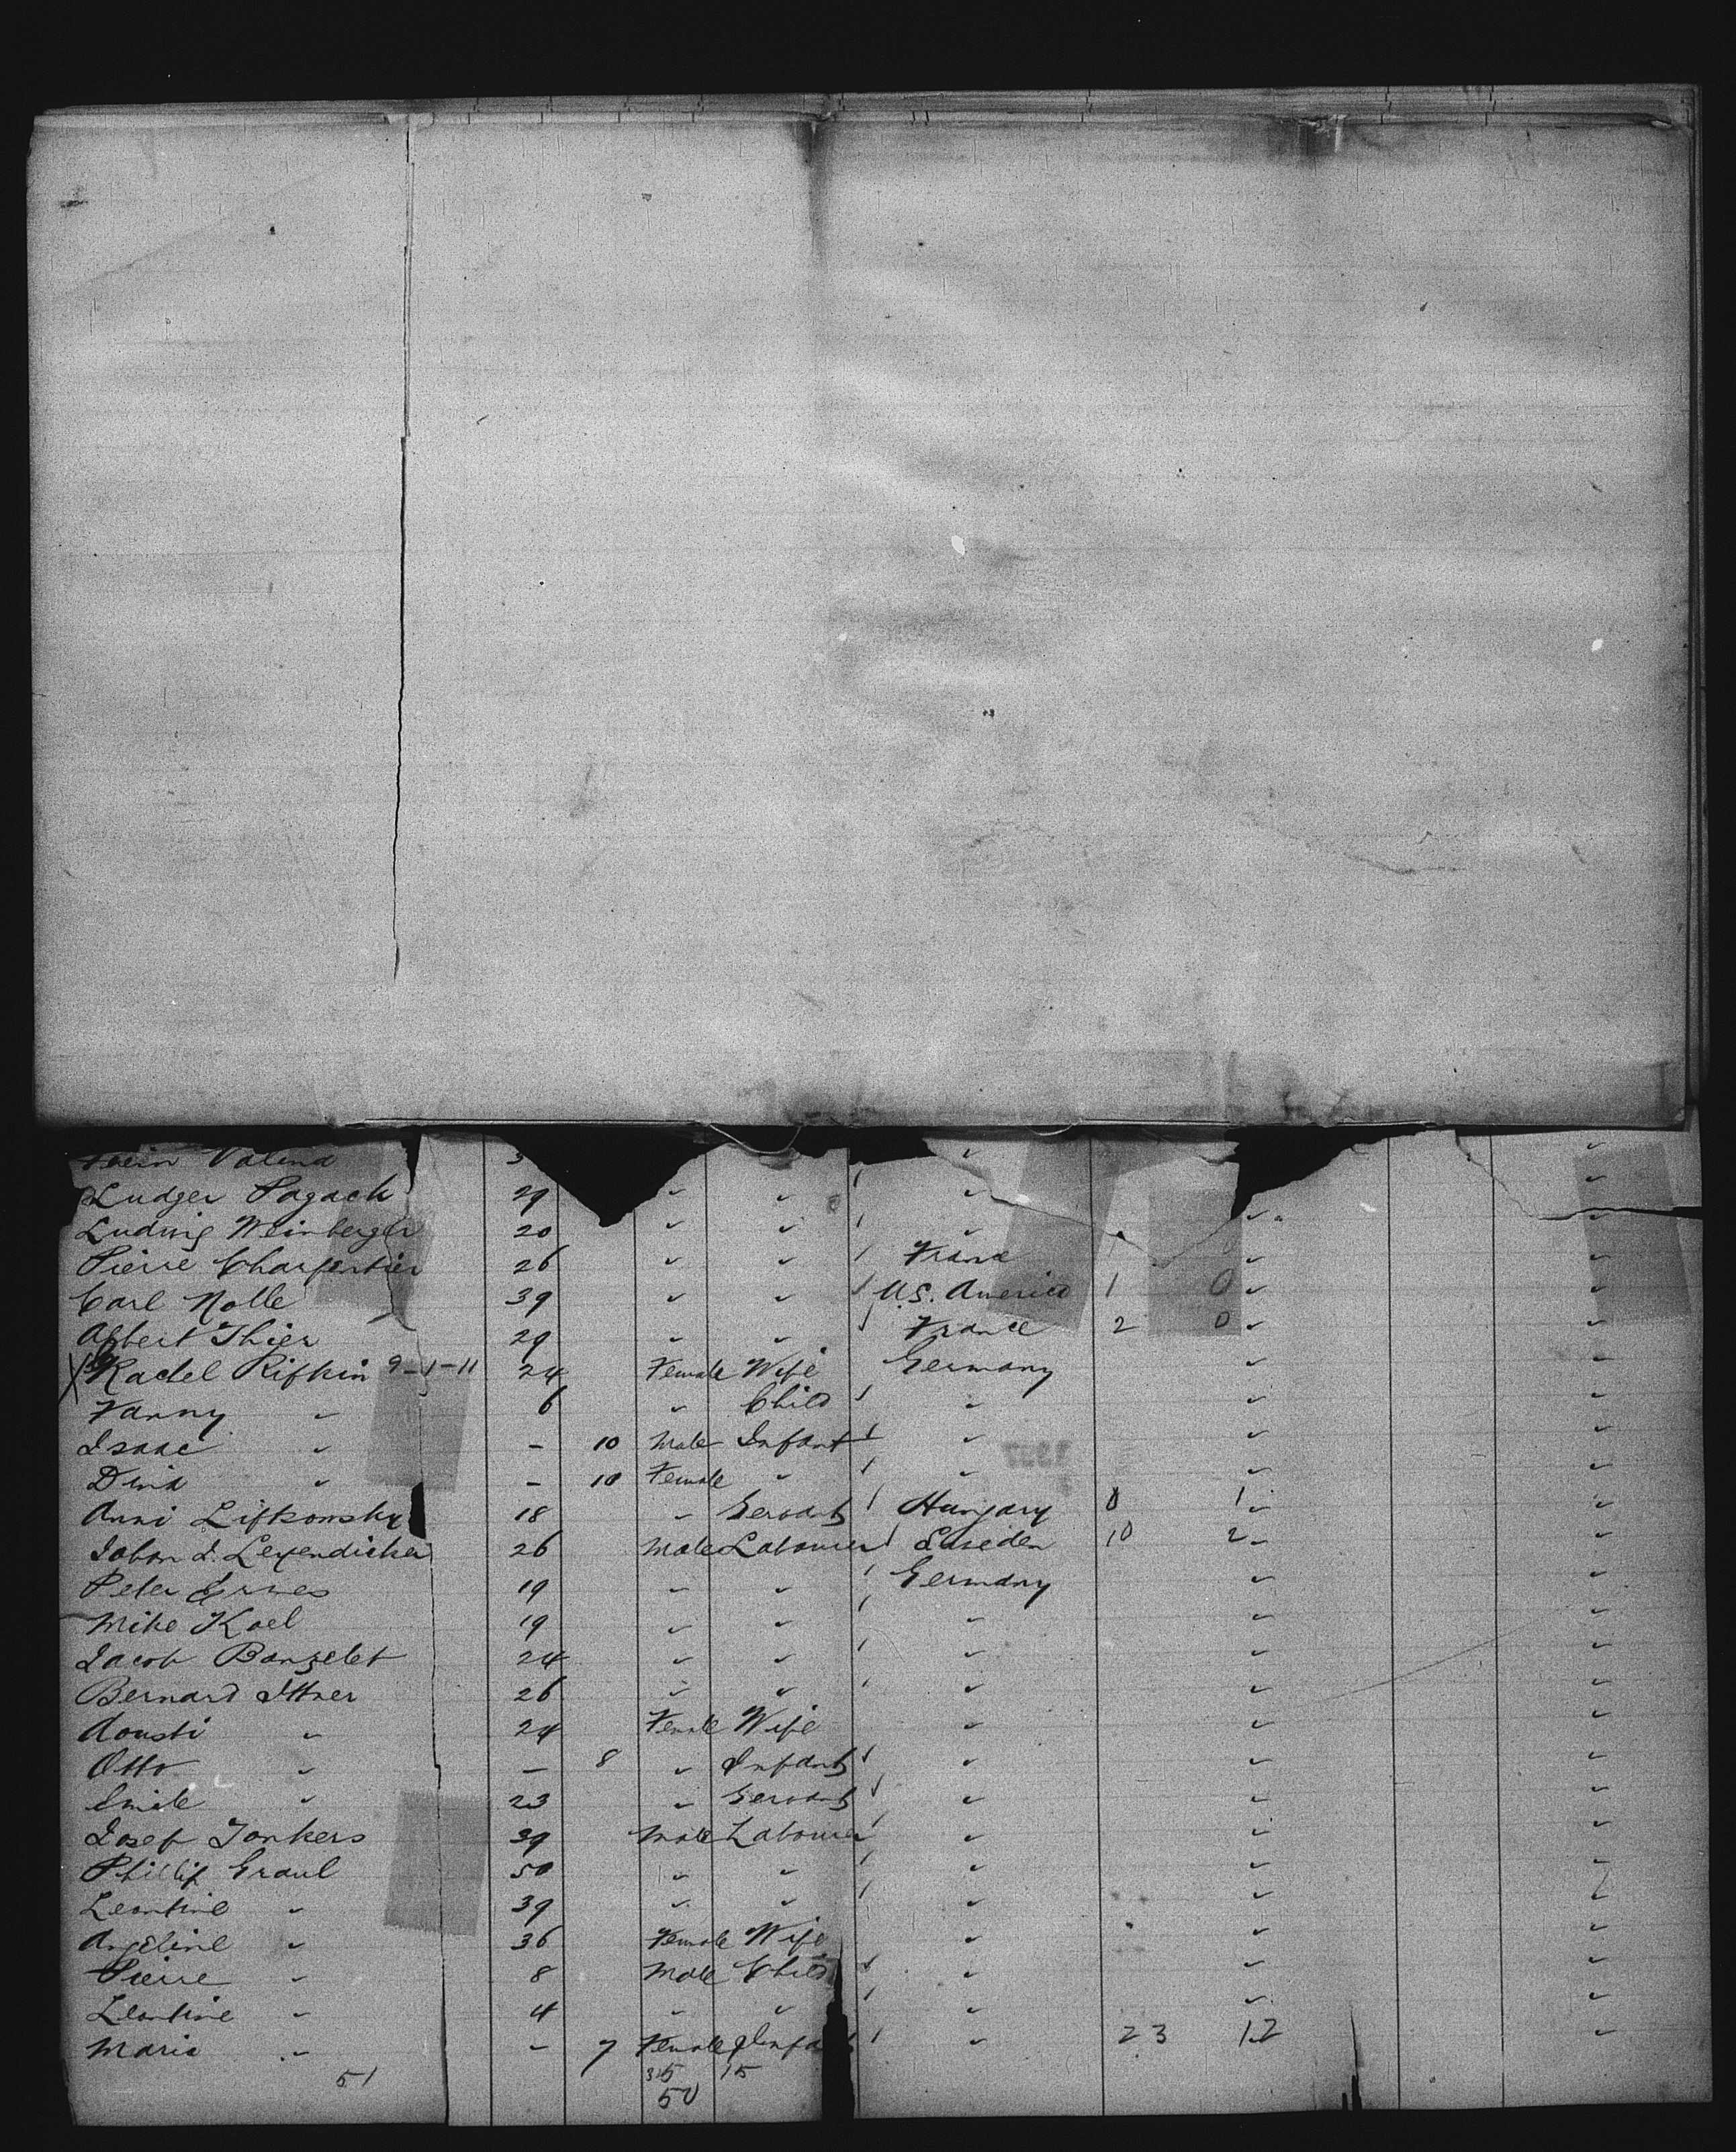 Valend 3 〃
Ludger Pagach 29 〃 〃 1 〃 〃 〃
Ludwig Weinberger 20 〃 〃 1 〃 〃 〃
Pierre Charpentier 26 〃 〃 1 France 〃 〃
Carl Nolle 39 〃 〃 1 U.S. America 1 0 〃 〃
Albert Thier 29 〃 〃 1 France 2 0 〃 〃
X Rachel Rifkin 9-1-11 24 Female Wife Germany 〃 〃
Fanny 〃 6 〃 Child 1 〃 〃 〃
Isaac 〃 - 10 Male Infant 1 〃 〃 〃
〃 - 10 Female 〃 1 〃 〃 〃
Anni Lifkonsky 18 〃 Servant 1 Hungary 0 1 〃 〃
26 Male Labourer 1 Sweden 10 2 〃 〃
Peter 19 〃 〃 1 Germany 〃 〃
Mike Kael 19 〃 〃 1 〃 〃 〃
Jacob Banzelet 24 〃 〃 1 〃 〃 〃
Bernard Ittner 26 〃 〃 1 〃 〃 〃
〃 24 Female Wife 〃 〃 〃
Otto 〃 - 8 〃 Infant 1 〃 〃 〃
Emile 〃 23 〃 Servant 1 〃 〃 〃
Josef Jonkers 39 Male Labourer 1 〃 〃 〃
Phillip Graul 50 〃 〃 1 〃 〃 〃
Leontine 〃 39 〃 〃 1 〃 〃 〃
Angeline 〃 36 Female Wife 〃 〃 〃
Pierre 〃 8 Male Child 1 〃 〃 〃
Leontine 〃 4 〃 〃 1 〃 〃 〃
Maria 〃 - 7 Female Infant 1 〃 23 12 〃
51 35 15
50